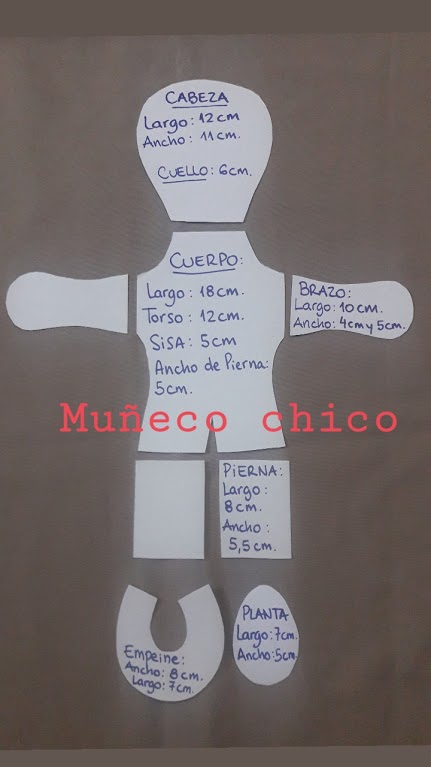 CABEZA
Largo: 12cm
Ancho: 11cm.
CUELLO: 6cm.
CUERPO:
Largo: 18cm.
Torso: 12cm.
SISA: 5cm
Ancho de Pierna:
5cm.
BRAZO:
Largo: 10cm.
Ancho: 4cm y 5cm.
Muñeco chico
PIERNA:
Largo:
8cm.
Ancho:
5,5cm.
Empeine:
Ancho: 8cm.
Largo: 7cm.
PLANTA
Largo: 7cm.
Ancho: 5cm.